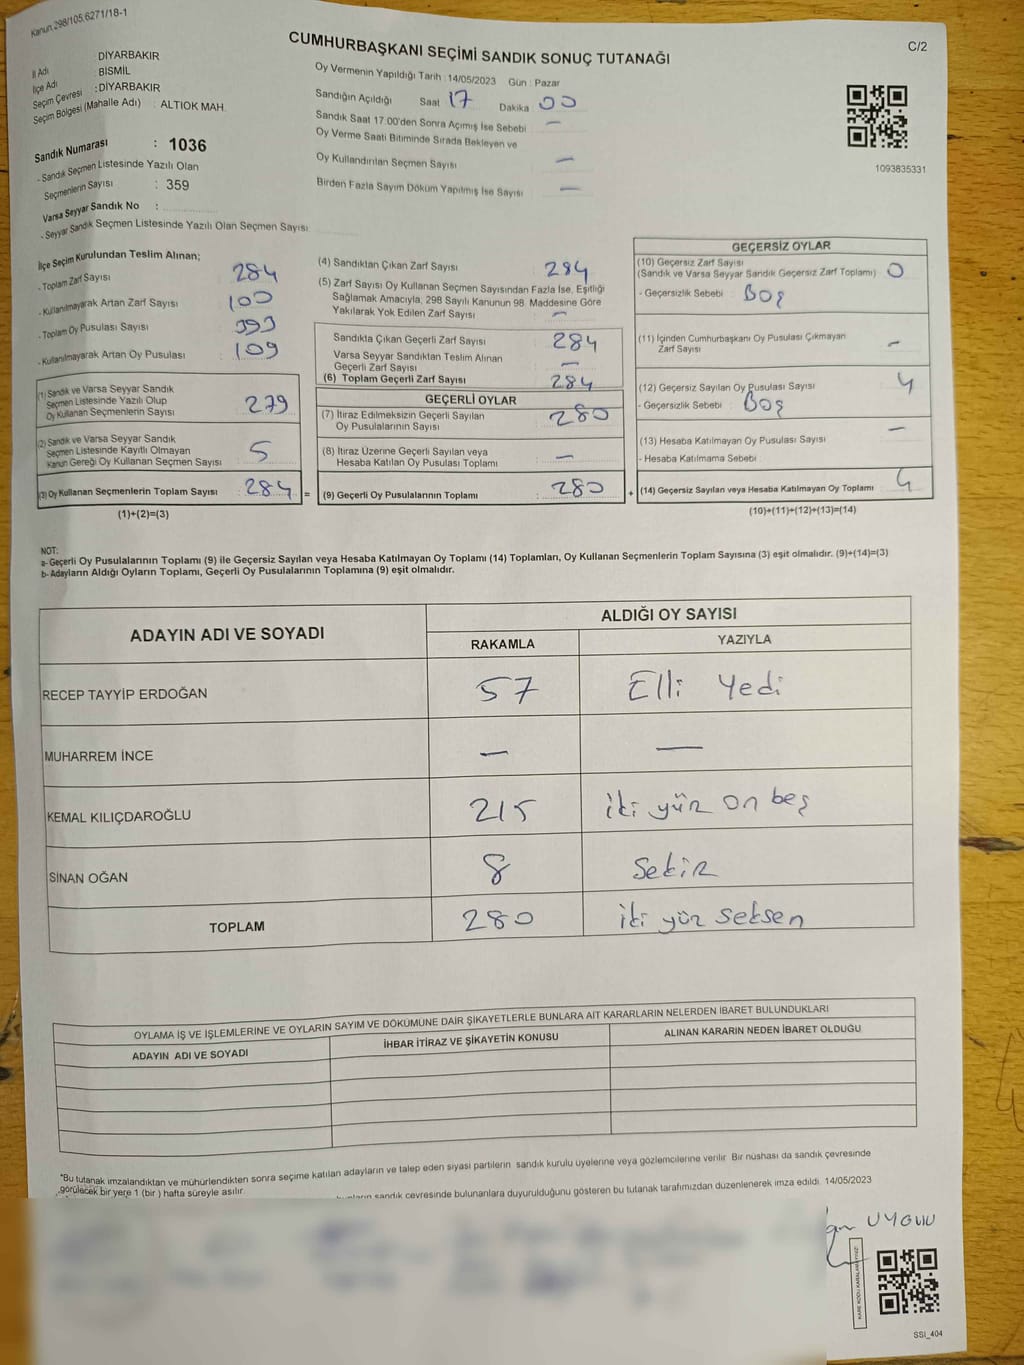 Kanun 298/105.6271/18-1
CUMHURBAŞKANI SEÇİMİ SANDIK SONUÇ TUTANAĞI
C/2
İl Adı DİYARBAKIR
İlçe Adı BİSMİL
Seçim Çevresi : DİYARBAKIR
Seçim Bölgesi (Mahalle Adı) : ALTIOK MAH.
Oy Vermenin Yapıldığı Tarih : 14/05/2023 Gün : Pazar
Sandığın Açıldığı Saat 17 Dakika 00
Sandık Saat 17:00'den Sonra Açımış İse Sebebi —
Oy Verme Saati Bitiminde Sırada Bekleyen ve
Oy Kullandırılan Seçmen Sayısı —
Birden Fazla Sayım Döküm Yapılmış İse Sayısı —
1093835331
Sandık Numarası : 1036
- Sandık Seçmen Listesinde Yazılı Olan
Seçmenlerin Sayısı : 359
Varsa Seyyar Sandık No :
- Seyyar Sandık Seçmen Listesinde Yazılı Olan Seçmen Sayısı :
İlçe Seçim Kurulundan Teslim Alınan;
- Toplam Zarf Sayısı 284
- Kullanılmayarak Artan Zarf Sayısı 100
- Toplam Oy Pusulası Sayısı 393
- Kullanılmayarak Artan Oy Pusulası : 109
(1) Sandık ve Varsa Seyyar Sandık
Seçmen Listesinde Yazılı Olup
Oy Kullanan Seçmenlerin Sayısı : 279
(2) Sandık ve Varsa Seyyar Sandık
Seçmen Listesinde Kayıtlı Olmayan
Kanun Gereği Oy Kullanan Seçmen Sayısı : 5
(3) Oy Kullanan Seçmenlerin Toplam Sayısı : 284 =
(1)+(2)=(3)
(4) Sandıktan Çıkan Zarf Sayısı : 284
(5) Zarf Sayısı Oy Kullanan Seçmen Sayısından Fazla İse, Eşitliği
Sağlamak Amacıyla, 298 Sayılı Kanunun 98. Maddesine Göre
Yakılarak Yok Edilen Zarf Sayısı : —
Sandıkta Çıkan Geçerli Zarf Sayısı : 284
Varsa Seyyar Sandıktan Teslim Alınan
Geçerli Zarf Sayısı : —
(6) Toplam Geçerli Zarf Sayısı : 284
GEÇERLİ OYLAR
(7) İtiraz Edilmeksizin Geçerli Sayılan
Oy Pusulalarının Sayısı : 280
(8) İtiraz Üzerine Geçerli Sayılan veya
Hesaba Katılan Oy Pusulası Toplamı : —
(9) Geçerli Oy Pusulalarının Toplamı : 280 +
GEÇERSİZ OYLAR
(10) Geçersiz Zarf Sayısı
(Sandık ve Varsa Seyyar Sandık Geçersiz Zarf Toplamı) : 0
- Geçersizlik Sebebi : Boş
(11) İçinden Cumhurbaşkanı Oy Pusulası Çıkmayan
Zarf Sayısı : —
(12) Geçersiz Sayılan Oy Pusulası Sayısı : 4
- Geçersizlik Sebebi : Boş
(13) Hesaba Katılmayan Oy Pusulası Sayısı : —
- Hesaba Katılmama Sebebi :
(14) Geçersiz Sayılan veya Hesaba Katılmayan Oy Toplamı : 4
(10)+(11)+(12)+(13)=(14)
NOT:
a- Geçerli Oy Pusulalarının Toplamı (9) ile Geçersiz Sayılan veya Hesaba Katılmayan Oy Toplamı (14) Toplamları, Oy Kullanan Seçmenlerin Toplam Sayısına (3) eşit olmalıdır. (9)+(14)=(3)
b- Adayların Aldığı Oyların Toplamı, Geçerli Oy Pusulalarının Toplamına (9) eşit olmalıdır.
ADAYIN ADI VE SOYADI ALDIĞI OY SAYISI
RAKAMLA YAZIYLA
RECEP TAYYİP ERDOĞAN 57 Elli Yedi
MUHARREM İNCE — —
KEMAL KILIÇDAROĞLU 215 iki yüz on beş
SİNAN OĞAN 8 Sekiz
TOPLAM 280 iki yüz seksen
OYLAMA İŞ VE İŞLEMLERİNE VE OYLARIN SAYIM VE DÖKÜMÜNE DAİR ŞİKAYETLERLE BUNLARA AİT KARARLARIN NELERDEN İBARET BULUNDUKLARI
ADAYIN ADI VE SOYADI İHBAR İTİRAZ VE ŞİKAYETİN KONUSU ALINAN KARARIN NEDEN İBARET OLDUĞU
*Bu tutanak imzalandıktan ve mühürlendikten sonra seçime katılan adayların ve talep eden siyasi partilerin sandık kurulu üyelerine veya gözlemcilerine verilir. Bir nüshası da sandık çevresinde
görülecek bir yere 1 (bir ) hafta süreyle asılır.
sandık çevresinde bulunanlara duyurulduğunu gösteren bu tutanak tarafımızdan düzenlenerek imza edildi. 14/05/2023
UYGUNU
KARE KODU KARALAMAYINIZ!
SSI_404